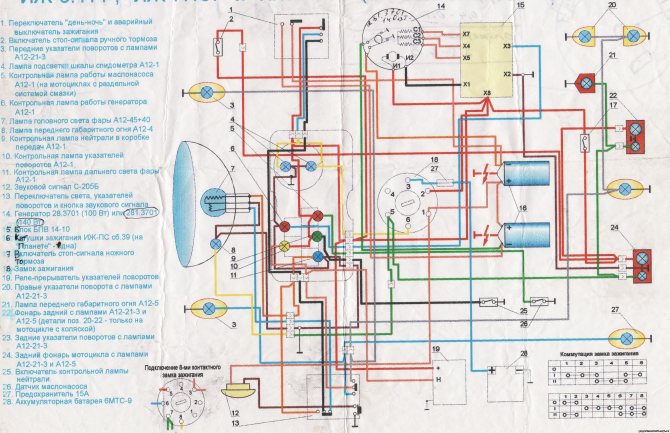 1. Переключатель "день-ночь" и аварийный
выключатель зажигания
2. Включатель стоп-сигнала ручного тормоза
3. Передние указатели поворотов с лампами
А12-21-3
4. Лампа подсветки шкалы спидометра А12-1
5. Контрольная лампа работы маслонасоса
А12-1 (на мотоциклах с раздельной
системой смазки)
6. Контрольная лампа работы генератора
А12-1
7. Лампа головного света фары А12-45+40
8. Лампа переднего габаритного огня А12-4
9. Контрольная лампа нейтрали в коробке
передач А12-1
10. Контрольная лампа указателей
поворотов А12-1
11. Контрольная лампа дальнего света фары
А12-1
12. Звуковой сигнал С-205Б
13. Переключатель света, указателей
поворотов и кнопка звукового сигнала
14. Генератор 28.3701 (100 Вт) или 281.3701
(140 Вт)
15. Блок БПВ 14-10
16. Катушки зажигания ИЖ-ПС сб.39 (на
"Планете" - одна)
17. Включатель стоп-сигнала ножного
тормоза
18. Замок зажигания
19. Реле-прерыватель указателей поворотов
20. Правые указатели поворота с лампами
А12-21-3
21. Лампа переднего габаритного огня А12-5
22. Фонарь задний с лампами А12-21-3 и
А12-5 (детали поз. 20-22 - только на
мотоцикле с коляской)
23. Задние указатели поворотов с лампами
А12-21-3
24. Задний фонарь мотоцикла с лампами
А12-21-3 и А12-5
25. Включатель контрольной лампы
нейтрали
26. Датчик маслонасоса
27. Предохранитель 15А
28. Аккумуляторная батарея 6МТС-9
Подключение 8-ми контактного
замка зажигания
Коммутация замка зажигания
1 2 3 4 5 6 7 8
0
I
II
1
2
3
4
5
6
7
8
9
10
11
12
13
14
15
16
17
18
19
20
21
22
23
24
25
26
27
28
X1
X2
X3
X5
X6
X7
X8
И1
И2
+
Н